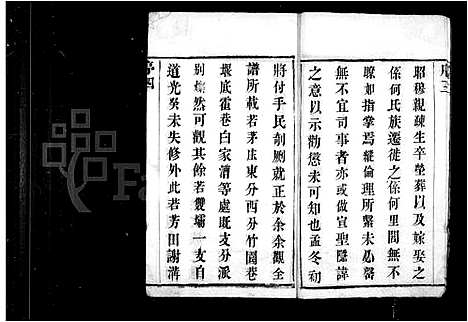 序三
昭穆親疎生卒塋葬以及嫁娶之
係何氏族遷徙之係何里閭無不
瞭如指掌焉縱倫理所繫未必畧
無不宜司事者亦或做宣聖隱諱
之意以示勸懲未可知也孟冬初
將付手民剞劂就正於余余觀全
譜所載若茅庄東分西分竹園巷
堰底霍巷白家灣等處既支分派
別燦然可觀其餘若雙壩一支自
道光癸未失修外此若芳田謝灣
序四